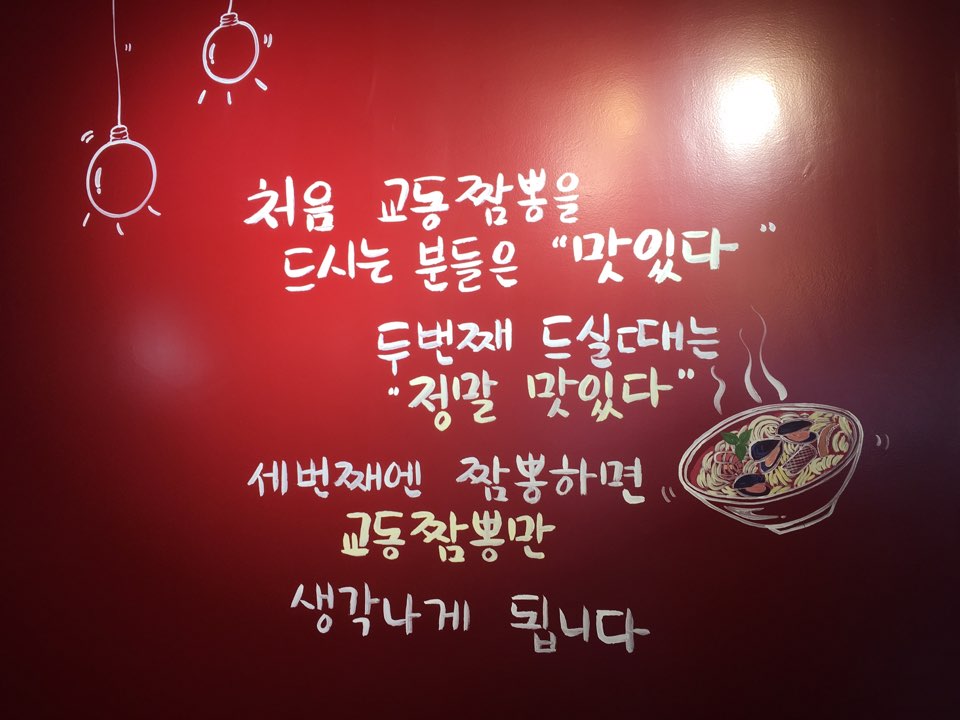 처음 교동짬뽕을
드시는 분들은 "맛있다"
두번째 드실때는
"정말 맛있다"
세번째엔 짬뽕하면
교동짬뽕만
생각나게 됩니다